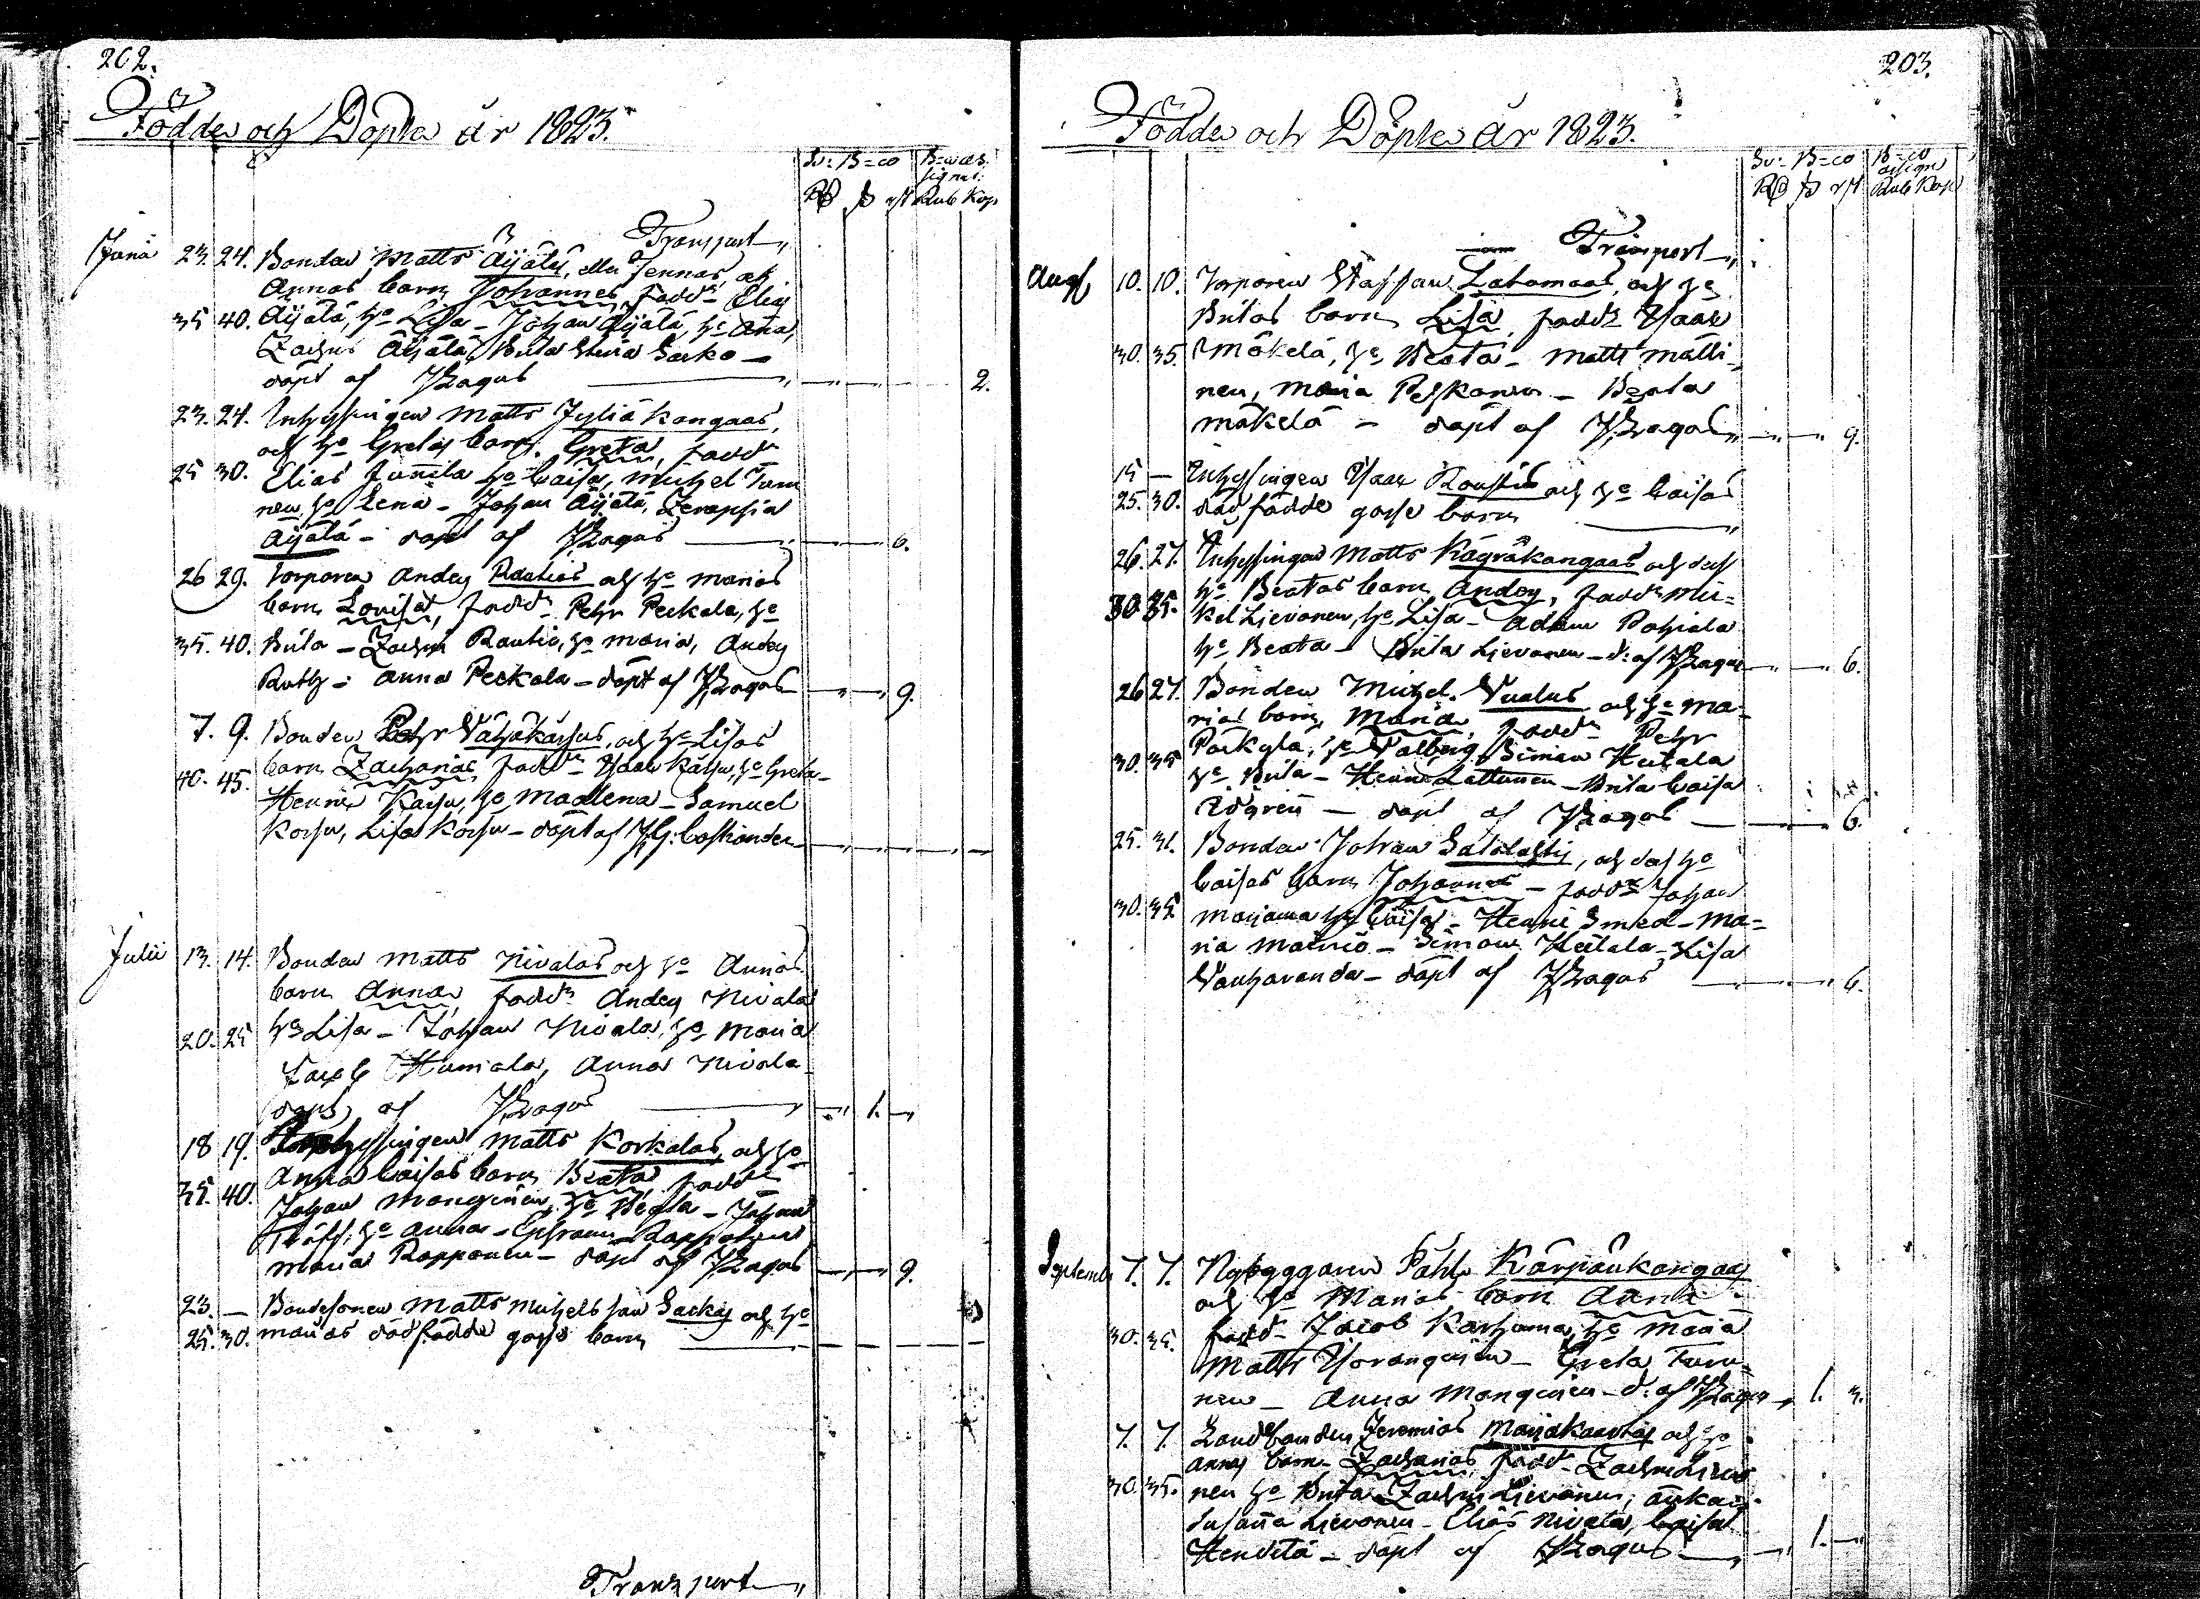 202.
Födde och Döpte år 1823.
Sv: B=co B=co as
signat:
RD ß rst Rub Kop
Transport
Junii 23. 24. Bonden Matts Äijälä, och Jennas
Annas barn Johannes, fadd: Elias
35 40. Äijälä, h:o Lisa - Johan Äijälä, h:o Ana,
Zachris Äijälä, Brita Stina Sarko -
döpt af JZagus 2.
23. 24. Inhyssingen Matts Jyliäkangaas,
och h:o Gretas barn Greta, fadd:
25 30. Elias Junnila h:o Caisa, Michel Turu
nen h:o Lena - Johan Äijälä,
Äijälä - döpt af JZagus 6.
26 29. Torparen Anders Rautios och h:o Marias
barn Lovisa, fadd: Pehr Peckala, h:o
35. 40. Brita - Zachris Rautio, h:o Maria, Anders
Anna Peckala - döpt af JZagus 9.
7. 9. Bonden Pehr Vähäkärsus, och h:o Lisas
barn Zacharias, fadd: Isaac Kärsu, h:o Greta -
40. 45. Henric Kärsu, h:o Madlena - Samuel
Korsu, Lisa Korsu - döpt af J.G. Costiander
Julii 13. 14. Bonden Matts Nivalas och h:o Annas
barn Anna, fadd: Anders Nivala
20. 25 h:o Lisa - Johan Nivala, h:o Maria
Jacob Humala, Anna Nivala
döpt af JZagus 1.
18 19. Inhyssingen Matts Korkalas, och h:o
Anna Caisas barn Beata, fadd:
35. 40. Johan Manginen, h:o Beata - Johan
Träff, h:o Anna - Ephraim Rapponen
Maria Rapponen - döpt af JZagus 9.
23. - Bondesonen Matts Michelsson Sarkas och h:o
25. 30. Marias dödfödde gosse barn
Transport
203.
Födde och Döpte År 1823.
Sv: B=co B=co
assign
RD ß rst Rub Kop
Transport
Aug 10. 10. Torparen Staffan Latomaas, och h:o
Britas barn Lisa, fadd: Isaac
30. 35. Mäkelä, h:o Beata - Matts Matti-
nen, Maria Peskonen - Beata
Mäkelä - döpt af JZagus 9.
15 - Inhyssingen Isaac Roustios och h:o Caisas
25. 30. död födde gosse barn
26. 27. Inhyssingen Matts Kägräkangaas och dess
h:o Beatas barn Anders, fadd: Mic=
30. 35. kel Lievonen, h:o Lisa - Adam Pohiola
h:o Beata - Brita Lievonen - d: af JZagus 6.
26 27. Bonden Michel Vuolus och h:o Ma=
rias barn, Maria, fadd: Pehr
30. 35 Parkyla, h:o Valborg, Simon Heitala
h:o Brita - Henric Lattunen - Brita Caisa
Zidgren - döpt af JZagus 6.
25. 31. Bonden Johan Satalahtis, och dess h:o
Caisas barn Johannes - fadd: Johan
30. 35 Marjama h:o Caisa - Henric Smed - Ma=
ria Mainio - Simon Heitala - Lisa
Vanharanda - döpt af JZagus 6.
Septemb 7. 7. Nybyggaren Påhl Kärpänkangas
och h:o Marias barn Anna -
30. 35. fadd: Jacob Karhuma, h:o Maria
Matts Yoranginen - Greta Turu=
nen - Anna Manginen - d: af JZagus 1. 3.
7. 7. Landbonden Jeremias Marjakaartas och h:o
Annas barn Zacharias, fadd: Zachris Lievo
30. 35. nen h:o Brita - Zachris Lievonen, änkan
Susanna Lievonen - Elias Nivala, Caisa
Hendilä - döpt af JZagus 1.